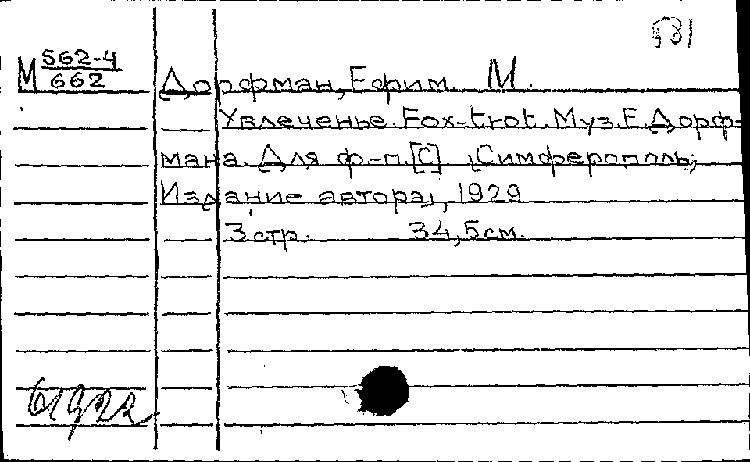 531
М 562-4/662
Дорфман, Ефим М.
Увлеченье. Fox-trot. Муз. Е. Дорф-
мана. Для ф-п. [С] Симферополь,
Издание автора, 1929
3 стр. 34,5 см.